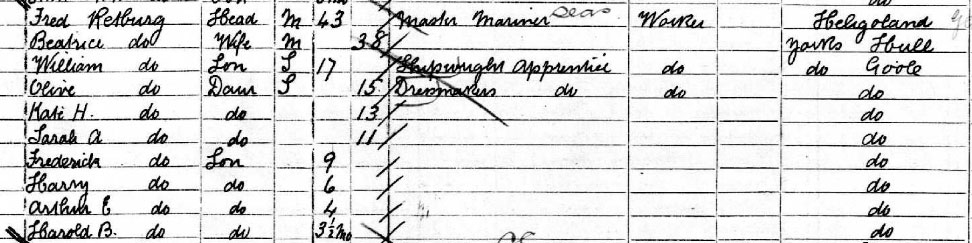 Fred Retburg Head M 43 Master Mariner Seas Worker Heligoland
Beatrice do Wife M 38 Yorks Hull
William do Son S 17 Shipwright Apprentice do do Goole
Olive do Daur S 15 Dressmakers do do do
Kate H. do do 13 do
Sarah A do do 11 do
Frederick do Son 9 do
Harry do do 6 do
Arthur E do do 4 do
Harold B. do do 3½ mo do